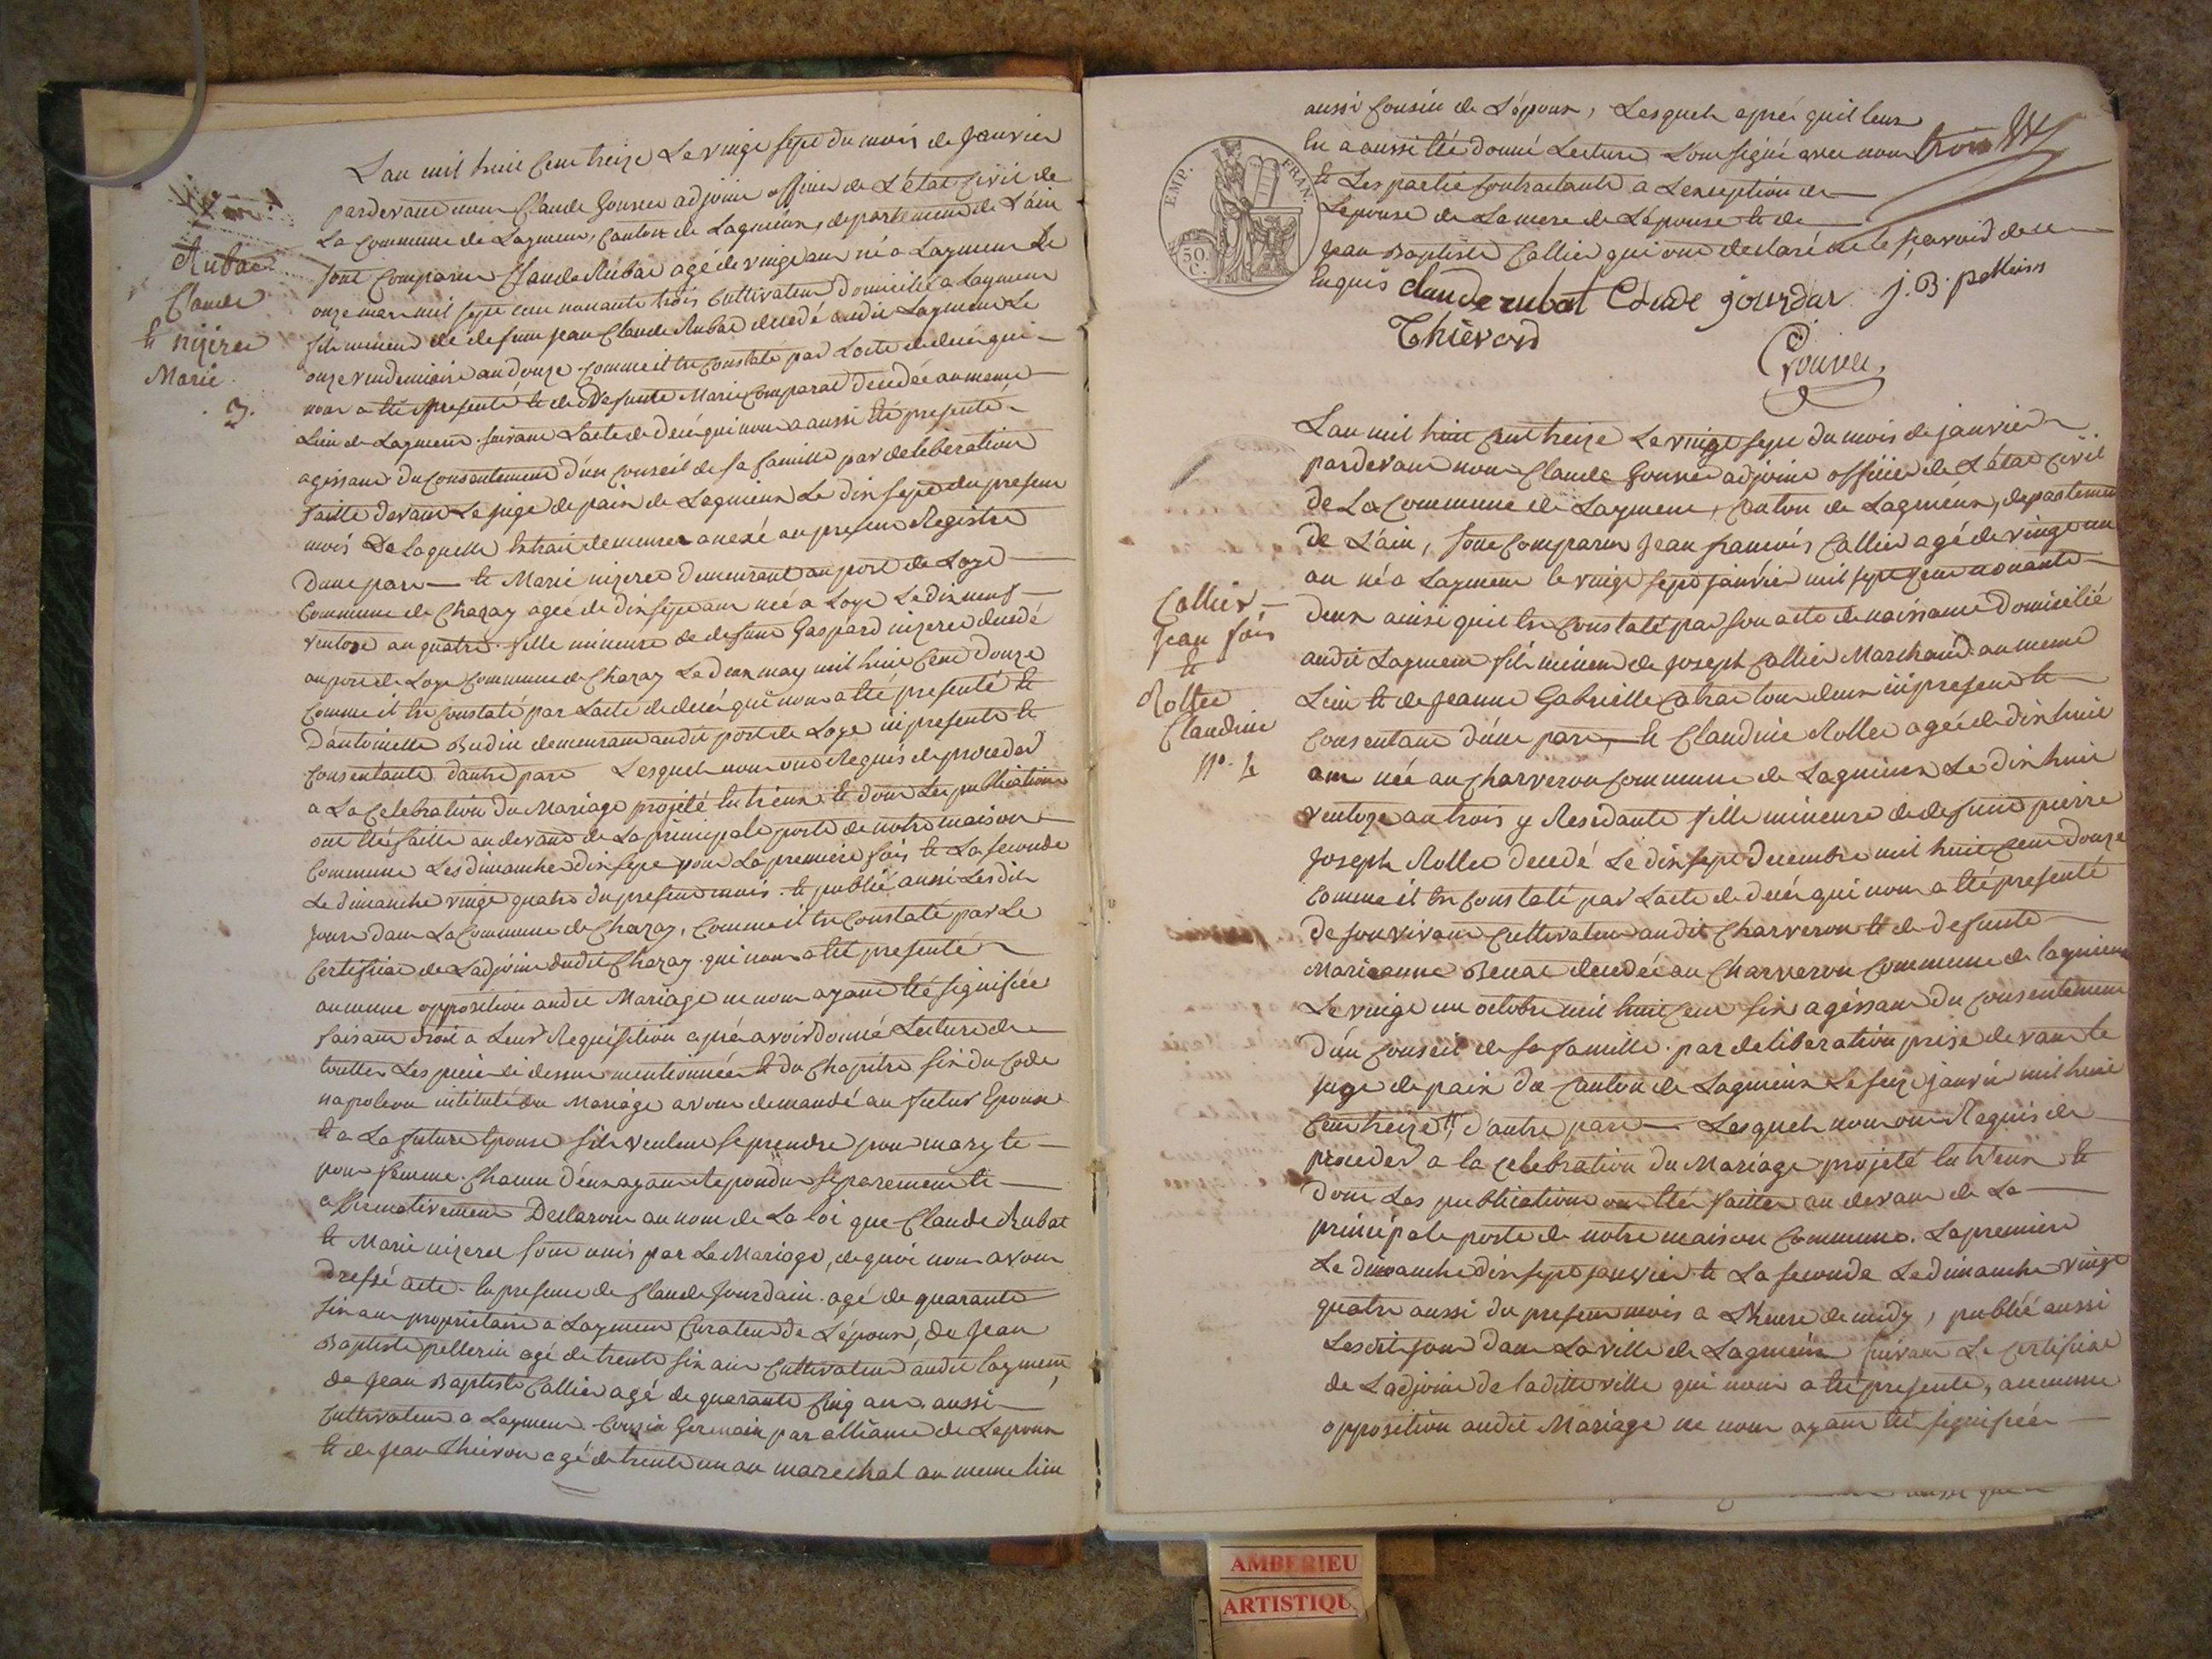 Rubat
Claude
et nizeree
Marie
3.
L'an mil huit cent treize Le vingt sept du mois de Janvier
pardevant nous Claude Gonnet adjoint officier de L'état civil de
La Commune de Laymeux, canton de Lagnieux, departement de L'ain
sont comparus Claude Rubat agé de vingt ans né a Laymeux Le
onze mars mil sept cent nonante trois cultivateur domicilié a Laymeux
fils mineur de defunt jean Claude Rubat decedé audit Laymeux Le
onze vendemiaire an douze comme il est constaté par L'acte de decès qui
nous a été presenté et de Defunte Marie Comparat decedée au meme
Lieu de Laymeux suivant L'acte de decès qui nous a aussi été presenté
agissant du consentement d'un conseil de sa famille par deliberation
faitte devant Le juge de paix de Lagnieux Le dix sept du present
mois De laquelle Extrait demeurera anexé au present Registre
d'une part et Marie nizeree demeurant au port de Loye
Commune de Chazay ageé de dix sept ans neé a Loye Le dix neuf
ventose an quatre fille mineure de defunt Gaspard nizeree decedé
au port de Loye commune de Chazay Le deux may mil huit cent douze
comme il est constaté par L'acte de decès qui nous a été presenté et
D'antoinette Budin demeurant audit port de Loye ici presente et
consentante d'autre part Lesquels nous ont Requis de proceder
a La Celebration du Mariage projeté entr'eux et dont Les publications
ont été faitte au devant de La principale porte de notre maison
Commune Les dimanche dix sept pour La premiere fois et La seconde
Le dimanche vingt quatre du present mois et publié aussi Les dits
jours dans La Commune de Chazay, comme il est constaté par Le
Certificat de L'adjoint dudit Chazay qui nous a été presenté
aucune opposition audit Mariage ne nous ayant été signifiée
faisant droit a Leur Requisition après avoir donné Lecture de
touttes Les pieces ci dessus mentionnées et du Chapitre six du Code
napoleon intitulé du Mariage avons demandé au futur Epoux
et a La future Epouse s'ils veulent se prendre pour mary et
pour femme. Chacun d'eux ayant repondu separement et
affirmativement Declarons au nom de La loi que Claude Rubat
et Marie nizeree sont unis par Le Mariage, de quoi nous avons
dressé acte. En presence de Claude Jourdain agé de quarante
six ans proprietaire a Laymeux Curateur de L'époux, de Jean
Baptiste pellerin agé de trente six ans Cultivateur audit laymeux,
de Jean Baptiste Callier agé de quarante cinq ans aussi
Cultivateur a Laymeux Cousin Germain par alliance de L'epoux
et de jean Thievon agé de trente un an marechal au meme lieu
aussi Cousin de L'époux, Lesquels après qu'il leur
En a aussi été donné Lecture L'ont signé avec nous
et Les parties contractante a L'exception de
L'epouse de La mere de L'épouse et de
Jean Baptiste Callier qui ont declaré ne le sçavoir de ce
Enquis
trois
claude rubat Claude jourdan J. B. pellerin
Thievon
Gonnet
EMP. FRAN.
50 C.
Callier
Jean fois
et
Rollet
Claudine
no. 4
L'an mil huit cent treize Le vingt sept du mois de janvier
pardevant nous Claude Gonnet adjoint officier de L'état civil
de La Commune de Laymeux, Canton de Lagnieux, departement
de L'ain, sont comparus Jean francois Callier agé de vingt un
an né a Laymeux le vingt sept janvier mil sept cent nonante
deux ainsi qu'il est constaté par son acte de naissance Domicilié
audit Laymeux fils mineur de Joseph Callier Marchand au meme
Lieu et de Jeanne Gabrielle Catrat tous deux ici present et
consentant d'une part, et Claudine Rollet ageé de dix huit
ans née au Charveron commune de Lagnieux Le dix huit
ventoze an trois y Residante fille mineure de defunt pierre
Joseph Rollet decedé Le dix sept decembre mil huit cent douze
comme il est constaté par L'acte de decès qui nous a été presenté
de son vivant cultivateur audit Charveron et de defunte
Marieanne Benat decedée au Charveron Commune de lagnieux
Le vingt un octobre mil huit cent six agissant du consentement
d'un Conseil de sa famille par deliberation prise devant le
juge de paix du Canton de Lagnieux Le seize janvier mil huit
cent treize, d'autre part Lesquels nous ont Requis de
proceder a la Celebration du Mariage projeté Entr'eux et
dont Les publications ont été faittes au devant de La
principale porte de notre maison Commune. La premiere
Le dimanche dix sept janvier et La seconde Le dimanche vingt
quatre aussi du present mois a L'heure de midy, publié aussi
Lesdits jours dans La ville de Lagnieux suivant Le Certificat
de L'adjoint de laditte ville qui nous a été presenté, aucunne
opposition audit Mariage ne nous ayant été signifiée
AMBERIEU
ARTISTIQU